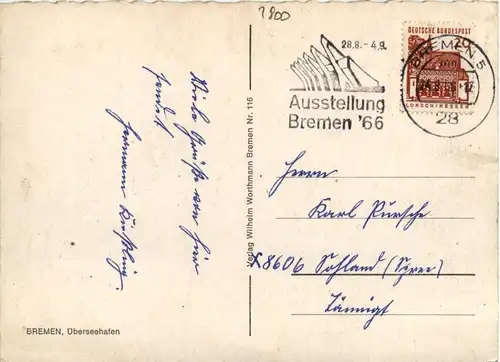 2800
28.8. - 4.9.
Ausstellung
Bremen '66
DEUTSCHE BUNDESPOST
20
LORSCH/HESSEN
BREMEN 5
28
Viele Grüße von hier
sendet
Hermann
Herrn
Karl Pursche
X8606 Sohland (Spree)
Tännigt
Verlag Wilhelm Worthmann Bremen Nr. 116
BREMEN, Überseehafen